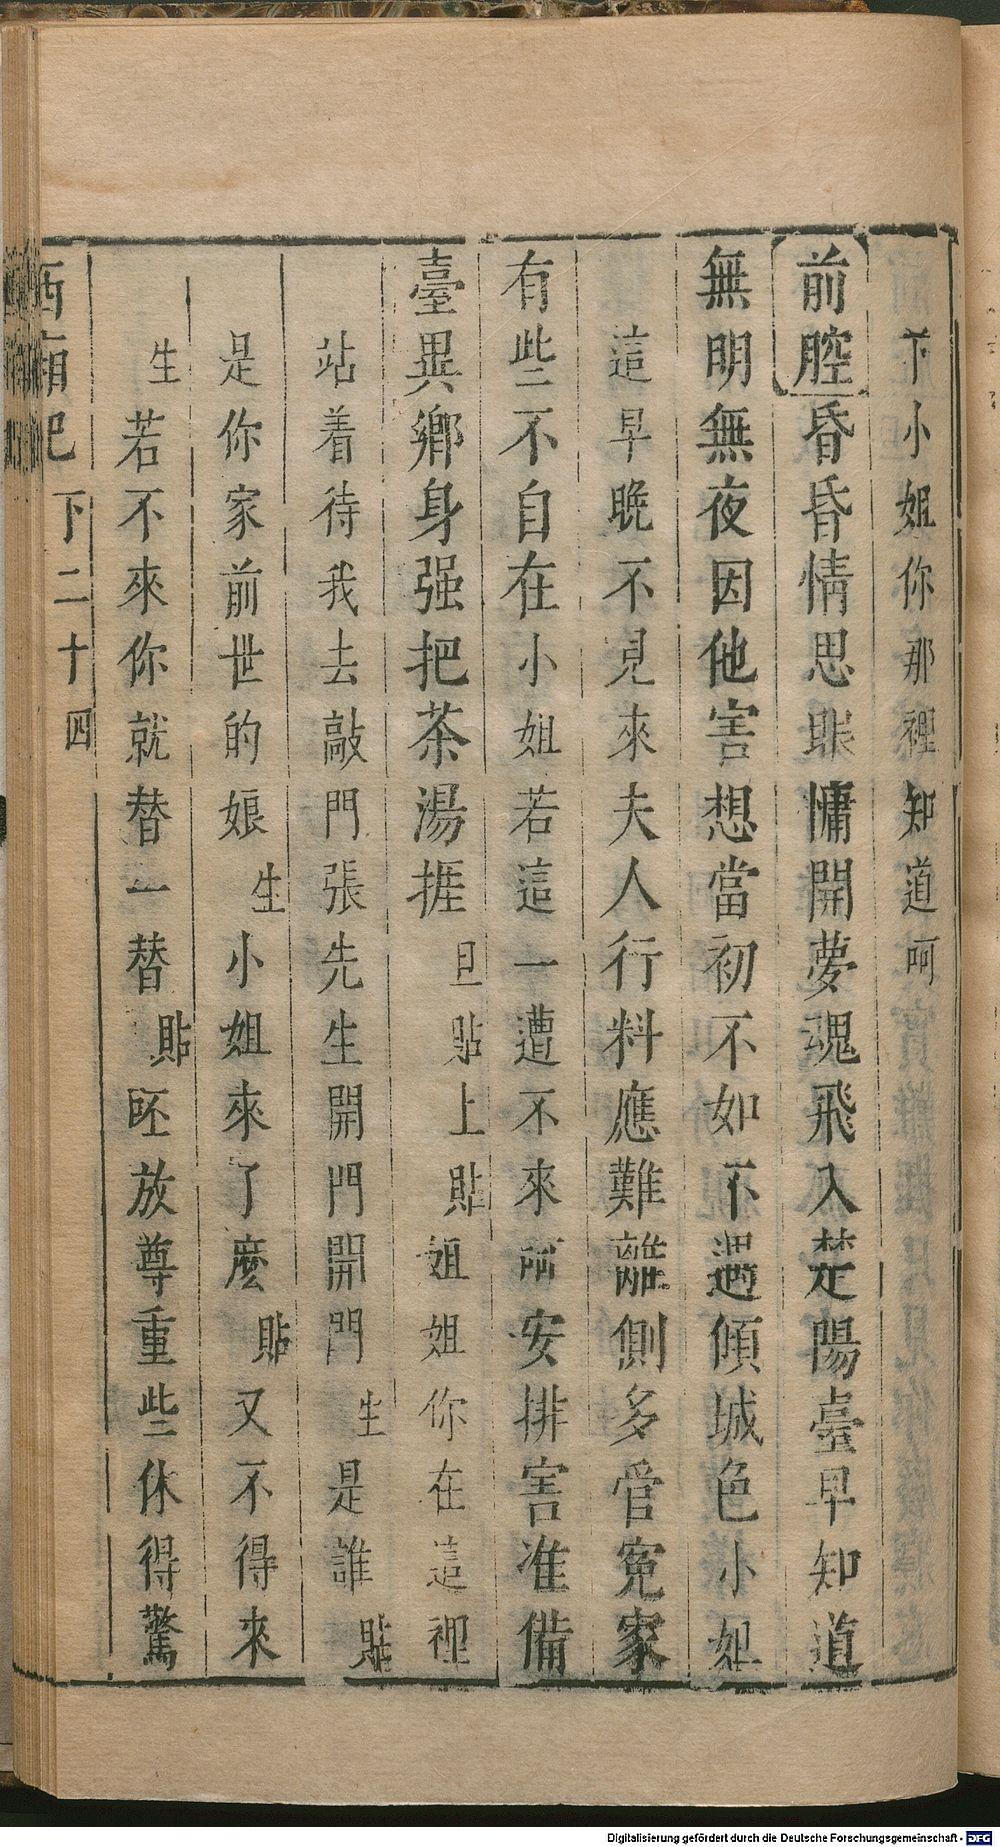 下小姐你那裡知道呵
前腔昏昏情思眼慵開夢魂飛入楚陽臺早知道
無明無夜因他害想當初不如不遇傾城色小姐
這早晚不見來夫人行料應難離側多管冤家
有些不自在小姐若這一遭不來呵安排害准備
臺異鄉身强把茶湯捱旦貼上貼姐姐你在這裡
站着待我去敲門張先生開門開門生是誰貼
是你家前世的娘生小姐來了麽貼又不得來
生若不來你就替一替貼呸放尊重些休得驚
西廂記 下二十四
Digitalisierung gefördert durch die Deutsche Forschungsgemeinschaft - DFG